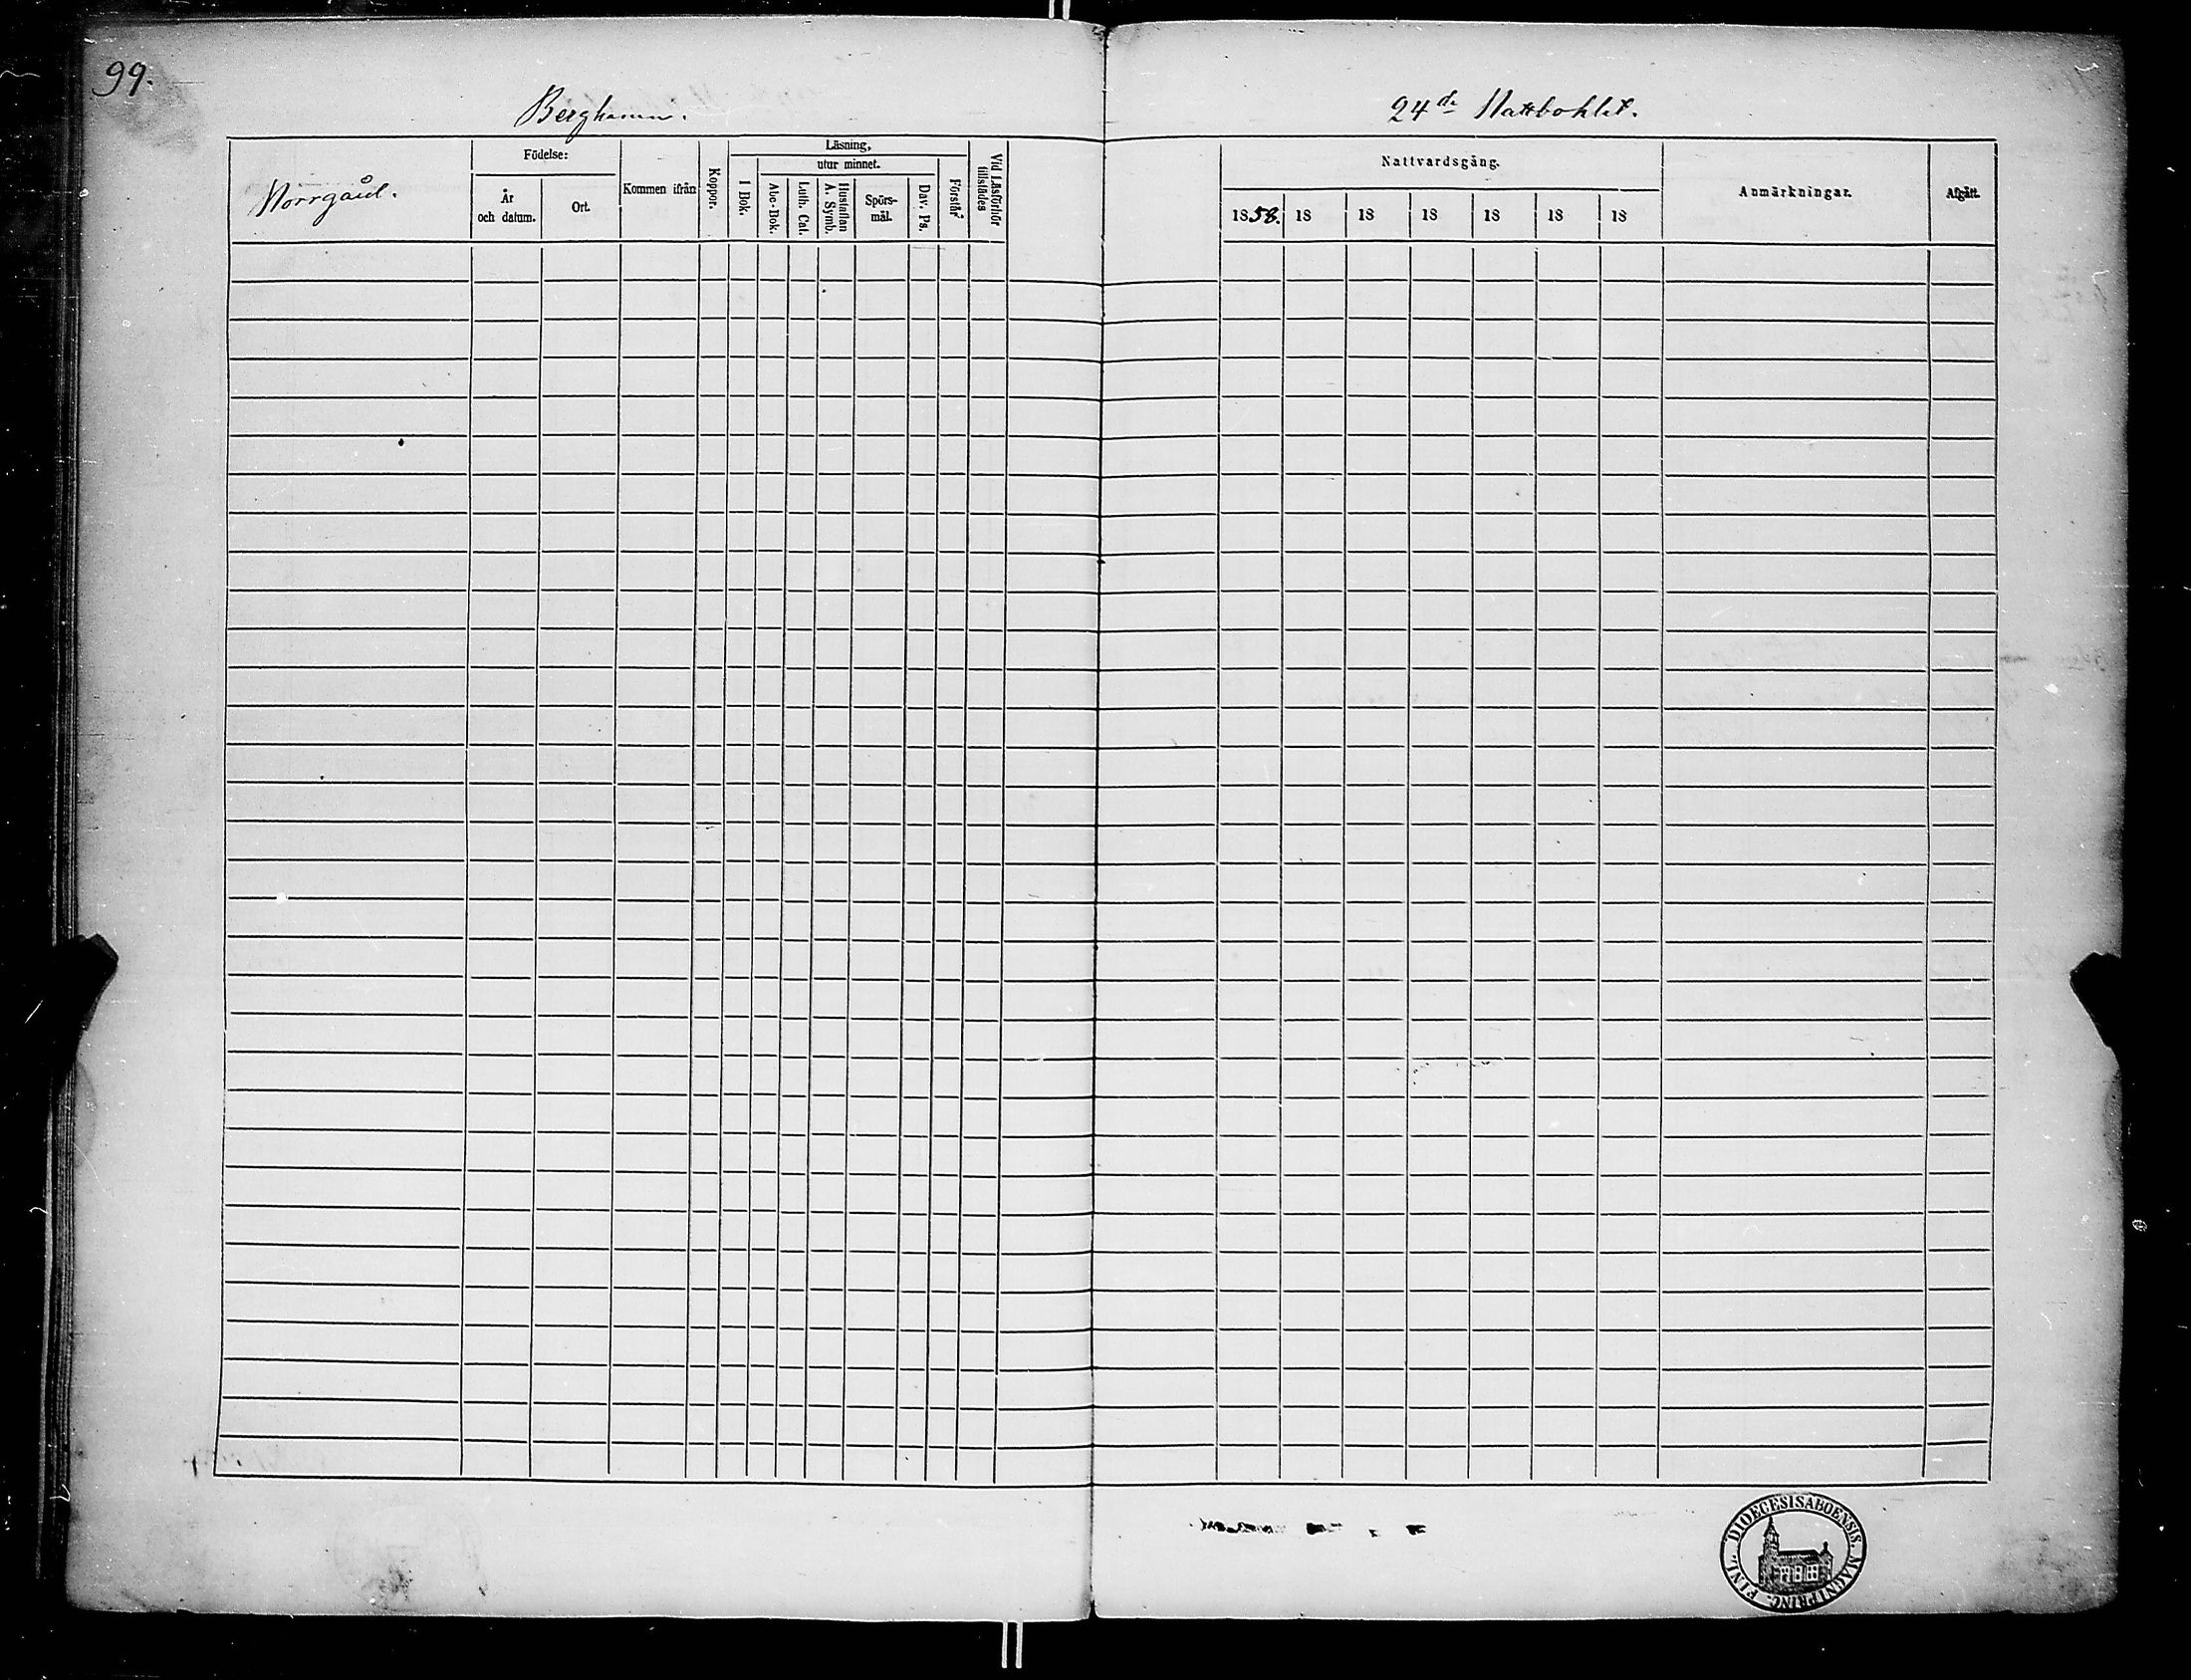 99.
Berghamn.
24de Mattbohlet.
Norrgård.
Födelse:
År
och datum.
Ort.
Kommen ifrån
Koppor.
Läsning,
utur minnet.
I Bok.
Abc-Bok.
Luth. Cat.
Hustaflan
A. Symb.
Spörs-
mål.
Dav. Ps.
Förstår
Vid Läsförhör
tillstädes
Nattvardsgång.
1858. 18 18 18 18 18 18
Anmärkningar.
Afgått.
DIOECESIS ABOENSIS. MAGNI PRINC. FINL.